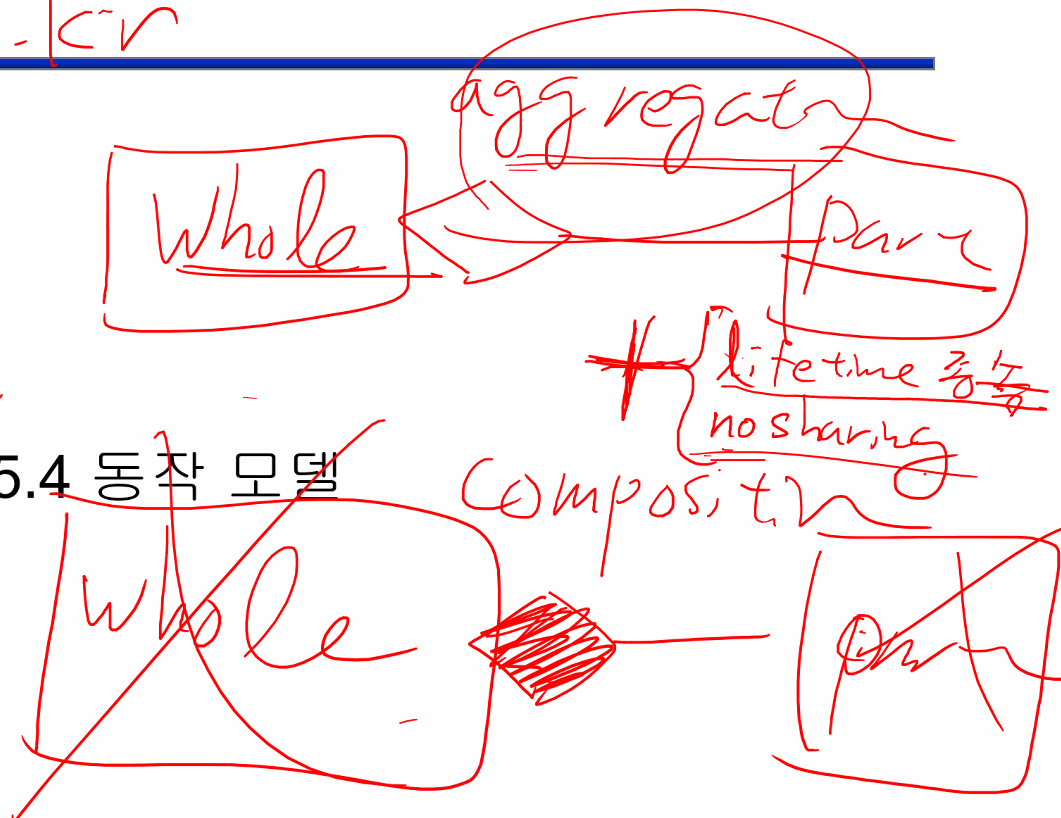 .kr
aggregation
Whole
Part
lifetime 종속
no sharing
5.4 동작 모델
Composition
Whole
Part